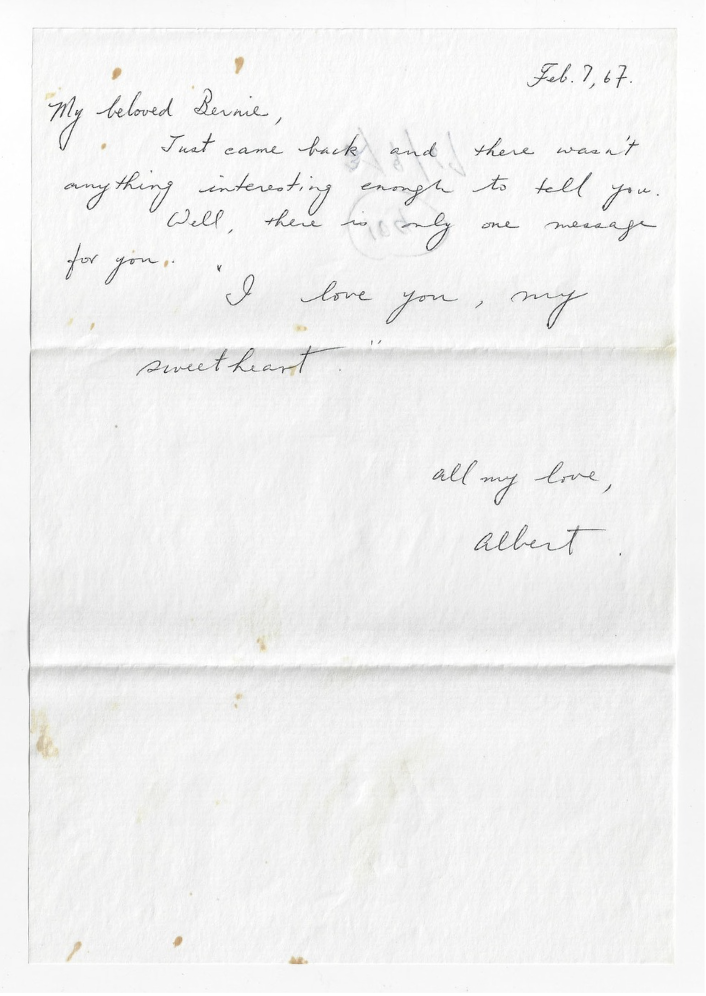 Feb. 7, 67.
My beloved Bernie,
Just came back and there wasn't
anything interesting enough to tell you.
Well, there is only one message
for you.
"I love you, my
sweetheart."
all my love,
Albert.